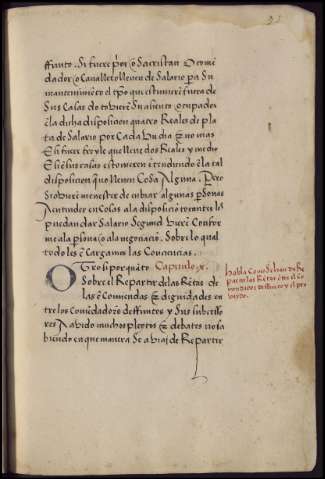 ffunto. Si fuere prior o Sacristan O come
dador o Cauallero lleuen de Salario para Su
mantenimiēto el tpō que estuuierē fuera de
Sus Casas do touierē Su asiento, ocupados
ēla dicha disposicion quatro Reales de pla
ta de Salario por Cada vn dia & no mas
E si fuere freyle que lleue dos Reales y medio
E si ē Sus casas estouieren ētendiendo ēla tal
disposicion que no lleuen Cosa Alguna. Pero
Si ouierē menester de enbiar algunas personas
A entender en Cosas ala disposiciō tocantes les
puedan dar Salario Segund vierē Confor
me ala persona o ala negociaciō. Sobre lo qual
todo les ē Cargamos las Conciencias.
Otrosi por quāto Capitulo .x.
Sobre el Repartir delas Rētas de
las ēComiendas & dignidades en
tre los Comēdadores deffuntos y Sus Subcesso
res A avido muchos pleytos & debates no sa
biendo en que manera Se avian de Repartir
habla Como Se han de Re
partir las Rētas ētre el Co
mendador deffunto y el pro
veydo.